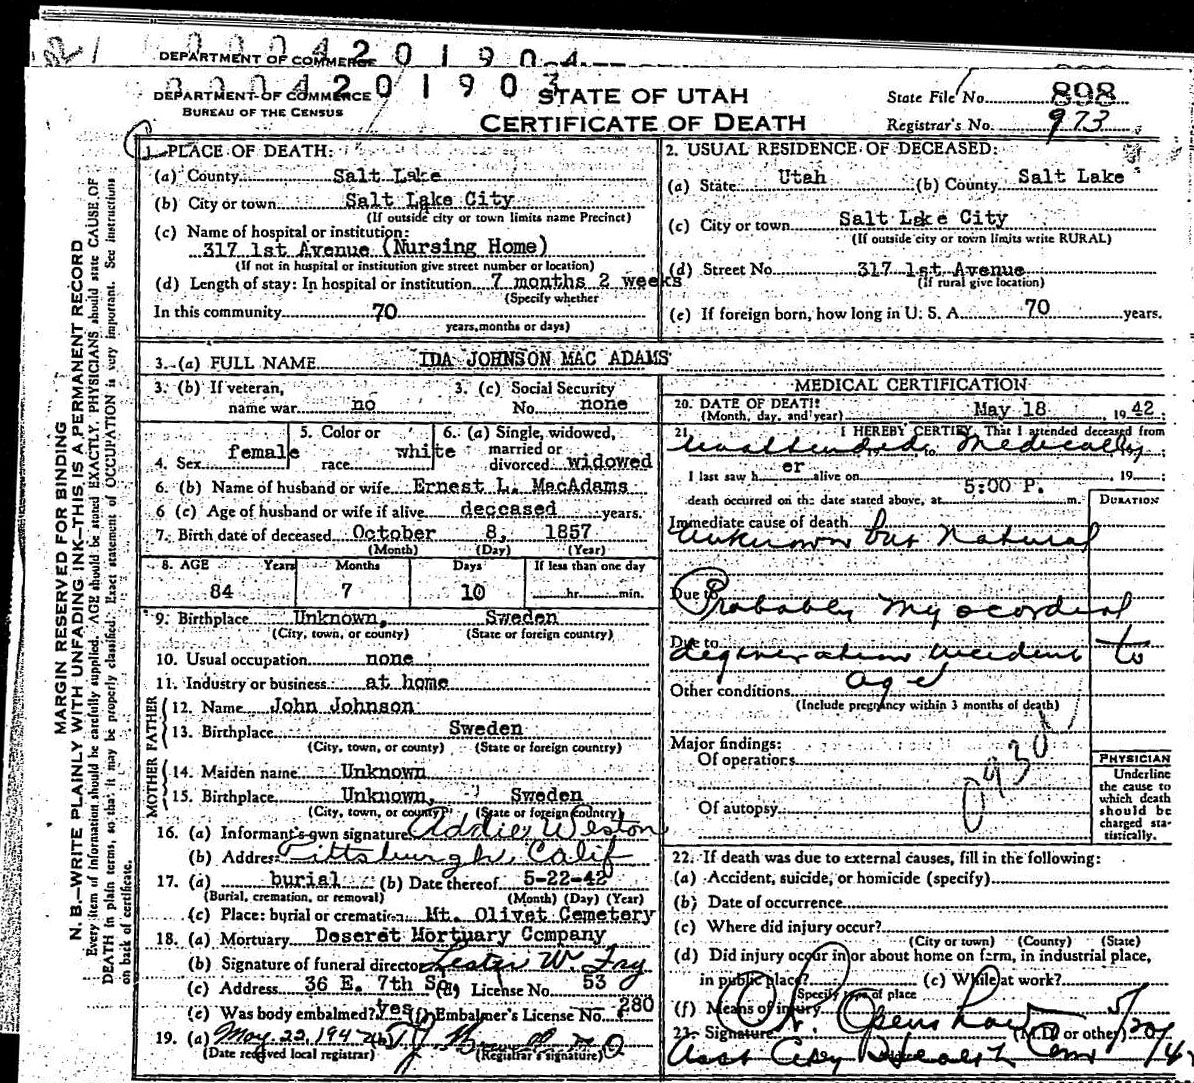 DEPARTMENT OF COMMERCE
0004201904
0004201903
DEPARTMENT OF COMMERCE
BUREAU OF THE CENSUS
STATE OF UTAH
CERTIFICATE OF DEATH
State File No. 898
Registrar's No. 973
MARGIN RESERVED FOR BINDING
N. B.—WRITE PLAINLY WITH UNFADING INK—THIS IS A PERMANENT RECORD
Every item of information should be carefully supplied. AGE should be stated EXACTLY. PHYSICIANS should state CAUSE OF
DEATH in plain terms, so that it may be properly classified. Exact statement of OCCUPATION is very important. See instructions
on back of certificate.
1. PLACE OF DEATH:
(a) County Salt Lake
(b) City or town Salt Lake City
(If outside city or town limits name Precinct)
(c) Name of hospital or institution:
317 1st Avenue (Nursing Home)
(If not in hospital or institution give street number or location)
(d) Length of stay: In hospital or institution 7 months 2 weeks
(Specify whether
In this community 70
years, months or days)
2. USUAL RESIDENCE OF DECEASED:
(a) State Utah (b) County Salt Lake
(c) City or town Salt Lake City
(If outside city or town limits write RURAL)
(d) Street No. 317 1st Avenue
(If rural give location)
(e) If foreign born, how long in U. S. A. 70 years.
3. (a) FULL NAME IDA JOHNSON MAC ADAMS
3. (b) If veteran,
name war no
3. (c) Social Security
No. none
4. Sex female
5. Color or
race white
6. (a) Single, widowed,
married or
divorced widowed
6. (b) Name of husband or wife Ernest L. MacAdams
6 (c) Age of husband or wife if alive deceased years.
7. Birth date of deceased October 8, 1857
(Month) (Day) (Year)
8. AGE Years Months Days If less than one day
84 7 10 hr. min.
9. Birthplace Unknown, Sweden
(City, town, or county) (State or foreign country)
10. Usual occupation none
11. Industry or business at home
FATHER
12. Name John Johnson
13. Birthplace Sweden
(City, town, or county) (State or foreign country)
MOTHER
14. Maiden name Unknown
15. Birthplace Unknown, Sweden
(City, town, or county) (State or foreign country)
16. (a) Informant's own signature Addie Weston
(b) Address Pittsburgh, Calif
17. (a) burial (b) Date thereof 5-22-42
(Burial, cremation, or removal) (Month) (Day) (Year)
(c) Place: burial or cremation Mt. Olivet Cemetery
18. (a) Mortuary Deseret Mortuary Company
(b) Signature of funeral director Lester W. Fry
(c) Address 36 E. 7th So. (d) License No. 53
(e) Was body embalmed? yes (f) Embalmer's License No. 280
19. (a) May 22, 1942 (b)
(Date received local registrar) (Registrar's signature)
MEDICAL CERTIFICATION
20. DATE OF DEATH:
(Month, day, and year) May 18, 1942
21. I HEREBY CERTIFY, That I attended deceased from
Unattended to Medically
I last saw her alive on , 19
death occurred on the date stated above, at 5:00 P. m.
DURATION
Immediate cause of death
Unknown but Natural
Due to Probably Myocordial
Due to degeneration incident to
age
Other conditions
(Include pregnancy within 3 months of death)
Major findings:
Of operations
Of autopsy
093d
PHYSICIAN
Underline
the cause to
which death
should be
charged sta-
tistically.
22. If death was due to external causes, fill in the following:
(a) Accident, suicide, or homicide (specify)
(b) Date of occurrence
(c) Where did injury occur?
(City or town) (County) (State)
(d) Did injury occur in or about home on farm, in industrial place,
in public place? (e) While at work?
Specify type of place
(f) Means of injury
23. Signature (M.D. or other) 5/20/42
Asst City Health Com